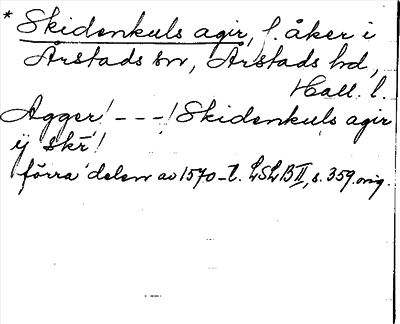 * Skidenkuls agir, f. åker i
Årstads sn, Årstads hd,
Hall. l.
Agger! - - -! Skidenkuls agir
ij skr̄!
förra delen av 1570-t. LSLB II, s. 359. orig.